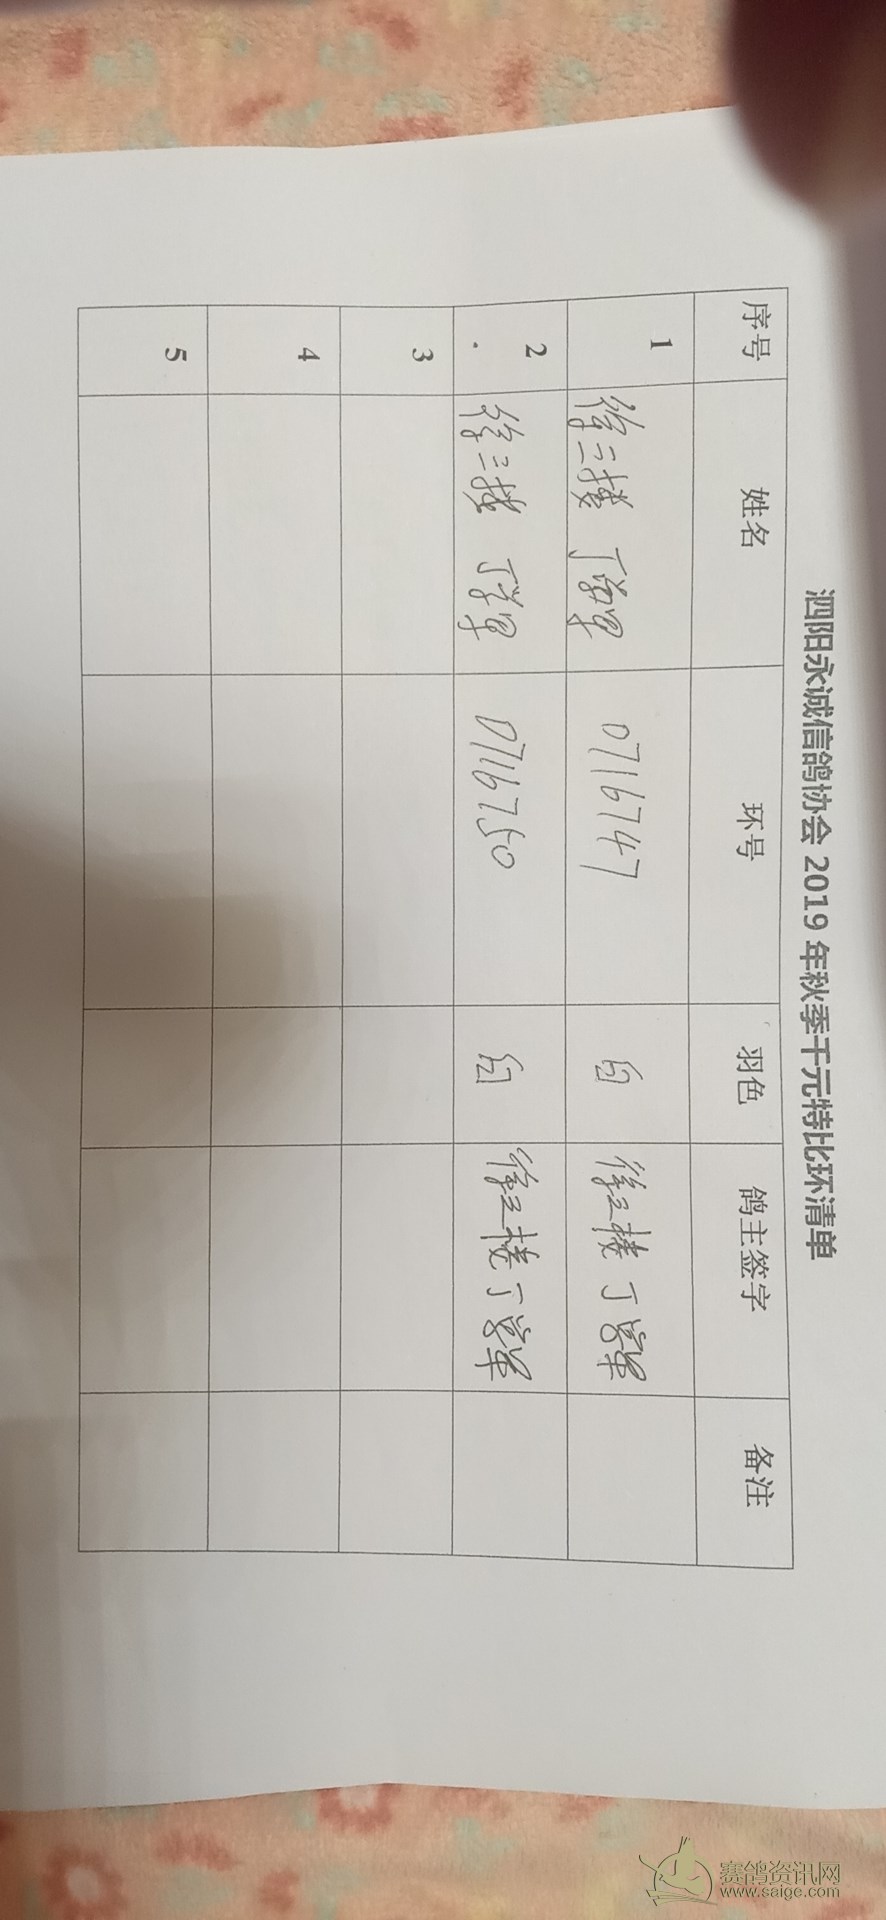 泗阳永诚信鸽协会 2019 年秋季千元特比环清单
序号 姓名 环号 羽色 鸽主签字 备注
1 徐三楼 丁学军 0716747 白 徐三楼 丁学军
2 徐三楼 丁学军 0716750 白 徐三楼 丁学军
3
4
5
赛鸽资讯网
www.saige.com